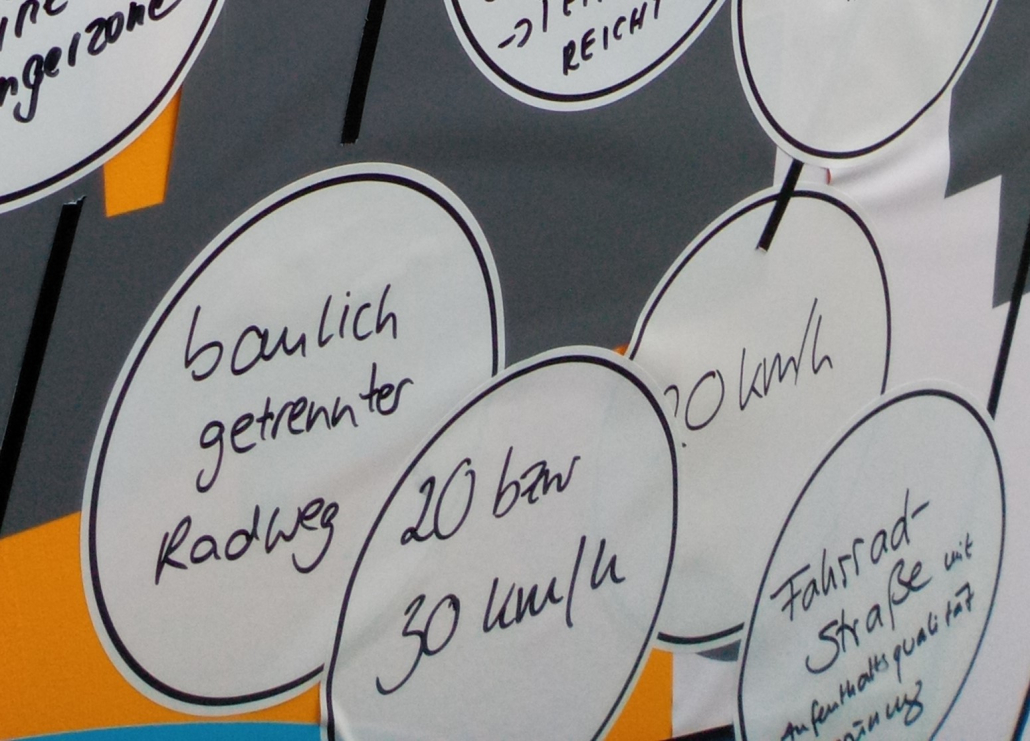 REICHT
baulich
getrennter
Radweg
20 bzw
30 km/h
km/h
Fahrrad-
straße mit
Aufenthaltsqualität